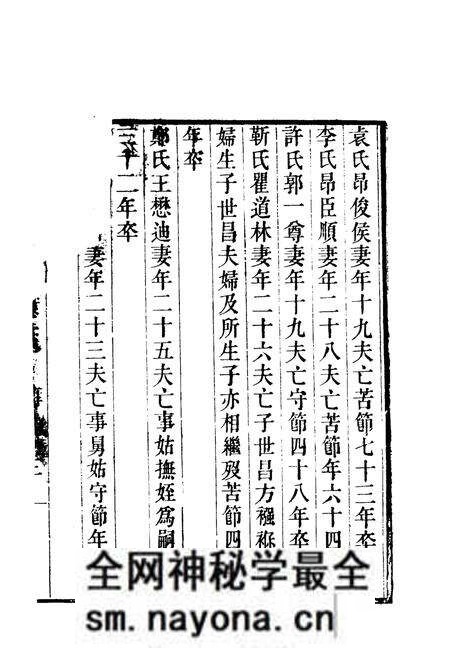 袁氏昂俊侯妻年十九夫亡苦節七十三年卒
李氏昂臣順妻年二十八夫亡苦節年六十四
許氏郭一尊妻年十九夫亡守節四十八年卒
靳氏瞿道林妻年二十六夫亡子世昌方襁褓
婦生子世昌夫婦及所生子亦相繼歿苦節四
年卒
鄭氏王懋迪妻年二十五夫亡事姑撫姪爲嗣
三十二年卒
妻年二十三夫亡事舅姑守節年
全网神秘学最全
sm.nayona.cn